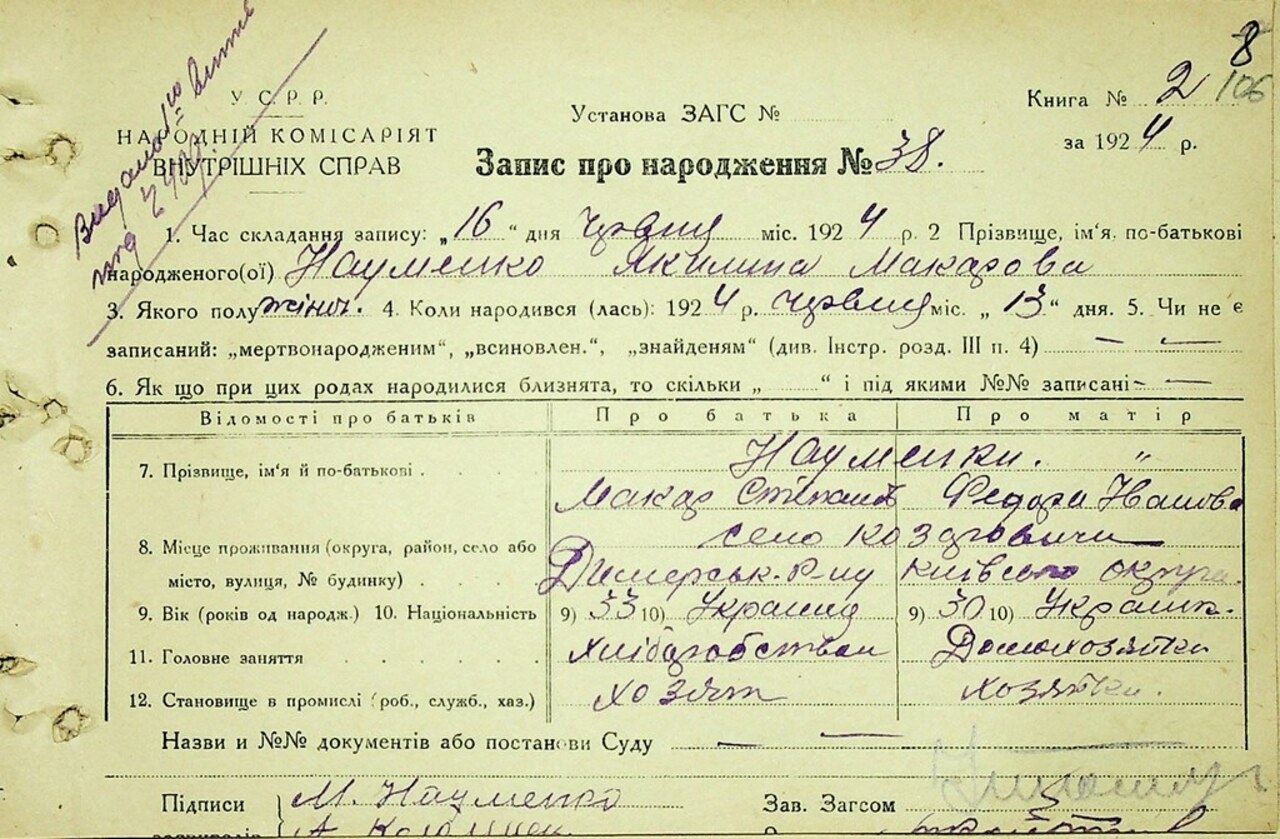 8
106
Видано
У. С. Р. Р.
НАРОДНІЙ КОМІСАРІЯТ
ВНУТРІШНІХ СПРАВ
Установа ЗАГС №
Книга № 2
за 1924 р.
Запис про народження № 38.
1. Час складання запису: „16“ дня червня міс. 1924 р. 2 Прізвище, ім'я. по-батькові
народженого(ої) Науменко Якилина Макарова
3. Якого полу жіноч. 4. Коли народився (лась): 1924 р. червня міс. „13“ дня. 5. Чи не є
записаний: „мертвонародженим“, „всиновлен.“, „знайденям“ (див. Інстр. розд. III п. 4) — —
6. Як що при цих родах народилися близнята, то скільки „ “ і під якими №№ записані - —
Відомості про батьків Про батька Про матір
7. Прізвище, ім'я й по-батькові Науменки. „
Макар Степанов Федора Іванова
8. Місце проживання (округа, район, село або село Козаровичи
місто, вулиця, № будинку) Димерськ. р-ну Київсько округи
9. Вік (років од народж.) 10. Національність 9) 33 10) Украинц 9) 30 10) Украинк.
11. Головне заняття Хлібаробством Домохозяйки
12. Становище в промислі (роб., служб., хаз.) хозяін хозяйки.
Назви и №№ документів або постанови Суду — —
Підписи М. Науменко Зав. Загсом
заявителів А.